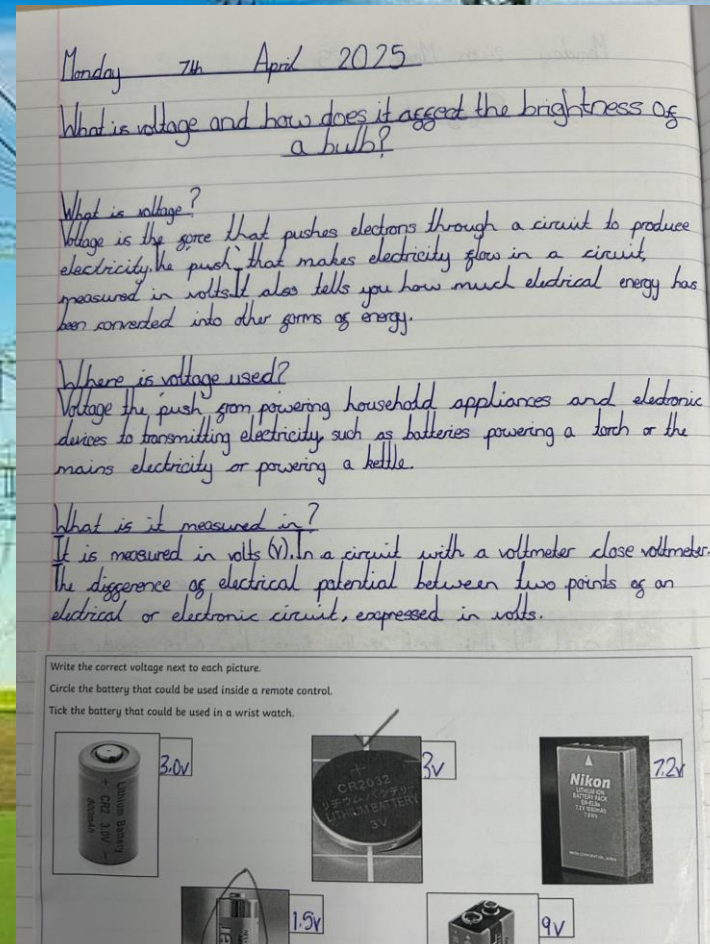 Monday 7th April 2025
What is voltage and how does it affect the brightness of
a bulb?
What is voltage?
Voltage is the force that pushes electrons through a circuit to produce
electricity. The "push" that makes electricity flow in a circuit,
measured in volts. It also tells you how much electrical energy has
been converted into other forms of energy.
Where is voltage used?
Voltage the push from powering household appliances and electronic
devices to transmitting electricity, such as batteries powering a torch or the
mains electricity or powering a kettle.
What is it measured in?
It is measured in volts (V). In a circuit with a voltmeter close voltmeter.
The difference of electrical potential between two points of an
electrical or electronic circuit, expressed in volts.
Write the correct voltage next to each picture.
Circle the battery that could be used inside a remote control.
Tick the battery that could be used in a wrist watch.
Lithium Battery
CR2 3.0V
3.0v
CR2032
リチウム バッテリー
LITHIUM BATTERY
3V
3v
Nikon
LITHIUM ION
BATTERY PACK
7.2v
1.5v
9v